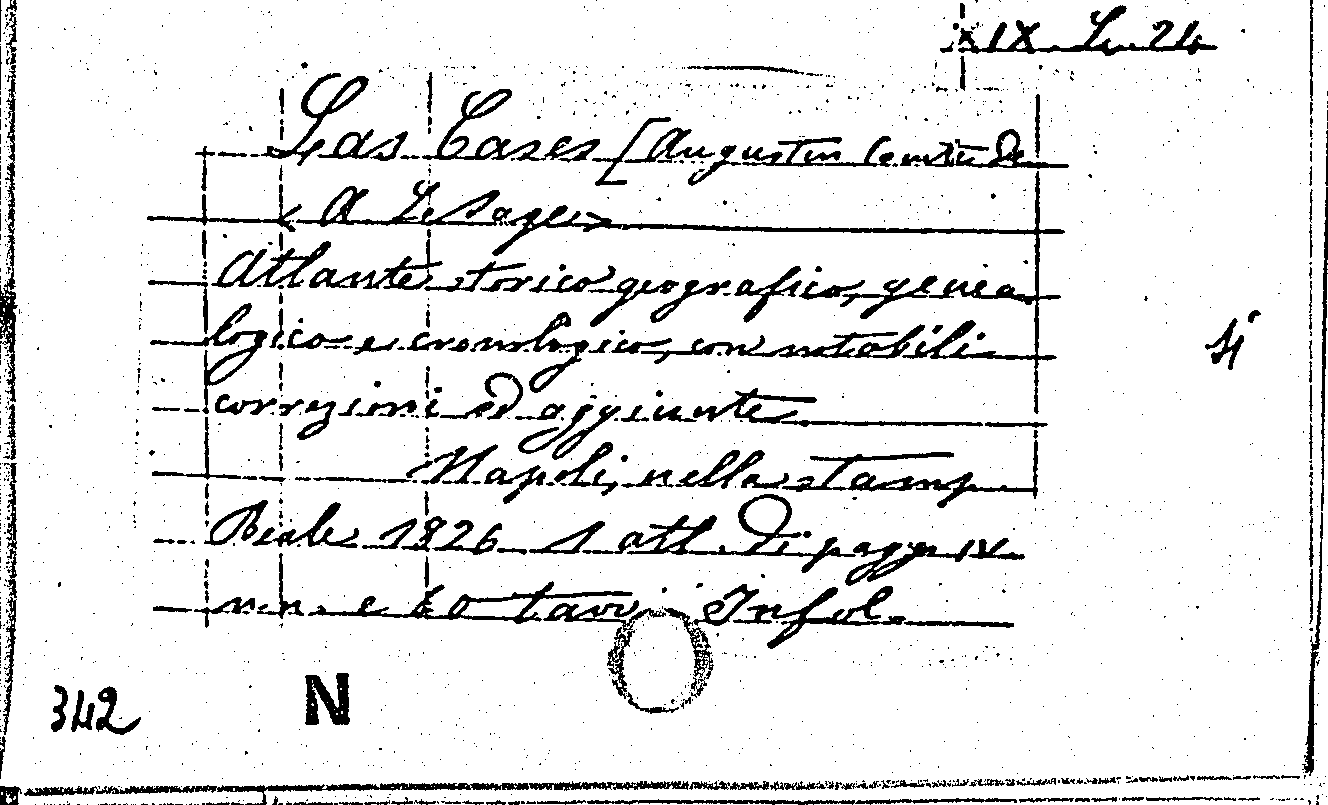 XIX. L. 24
Las Cases [Augustin Comte de
< A Le Sage >
Atlante storico geografico, genea-
logico e cronologico, con notabili
correzioni ed aggiunte
Napoli, nella stamp.
Reale 1826 1 atl. di pagg IV
n.n. e tavv. In fol.
342
N